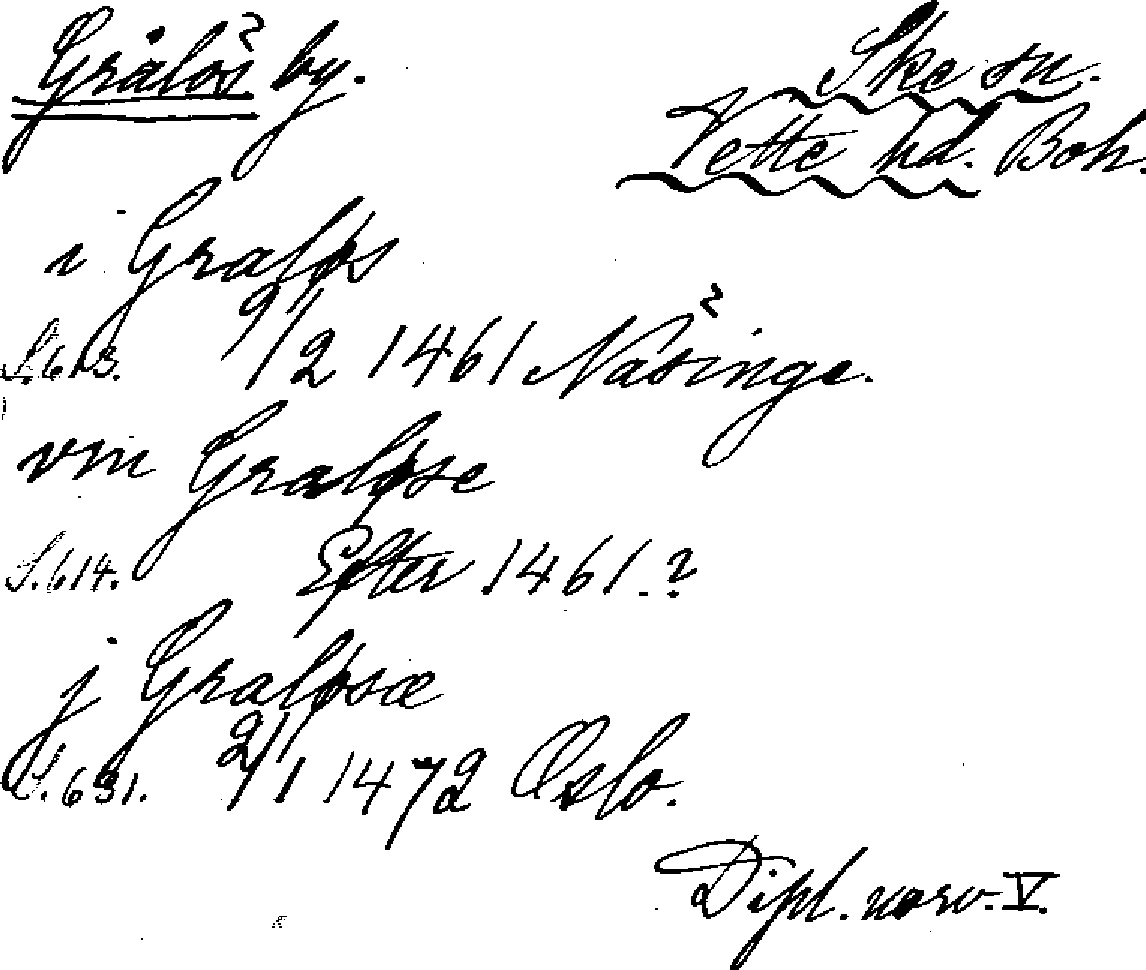 Grålös? by.
Ske sn.
Vette hd. Boh.
i Graløs
S. 613. 9/2 1461 Näsinge.?
vm Graløse
S. 614. Efter 1461.?
j Graløsæ
S. 631. 2/1 1472 Oslo.
Dipl. norv. V.